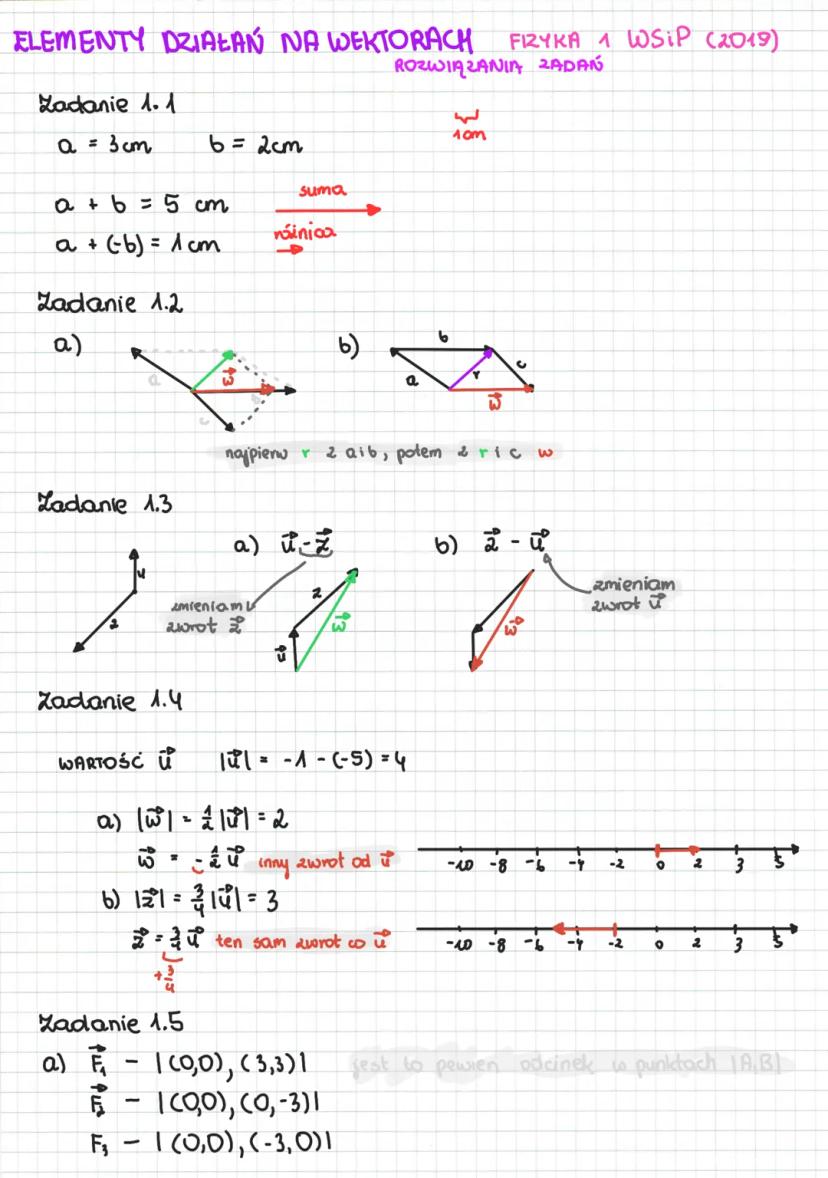 ELEMENTY DZIAŁAŃ NA WEKTORACH FIZYKA 1 WSiP (2019)
ROZWIĄZANIA ZADAŃ
Zadanie 1.1
a = 3cm b = 2cm
1cm
a + b = 5 cm suma
a + (-b) = 1cm różnica
Zadanie 1.2
a) a w⃗ b c
b) b a r c w⃗
najpierw r z a i b, potem z r i c w
Zadanie 1.3
a) u⃗ - z⃗ b) z⃗ - u⃗
u z
zmieniam
zwrot z⃗
z u⃗ w⃗
w⃗
zmieniam
zwrot u⃗
Zadanie 1.4
WARTOŚĆ u⃗ |u⃗| = -1 - (-5) = 4
a) |w⃗| = 1/2 |u⃗| = 2
w⃗ = - 1/2 u⃗ inny zwrot od u⃗
-10 -8 -6 -4 -2 0 2 3 5
b) |z⃗| = 3/4 |u⃗| = 3
z⃗ = 3/4 u⃗ ten sam zwrot co u⃗
-10 -8 -6 -4 -2 0 2 3 5
+3/4
Zadanie 1.5
a) F⃗₁ - |(0,0), (3,3)| jest to pewien odcinek w punktach |A,B|
F⃗₂ - |(0,0), (0,-3)|
F₃ - |(0,0), (-3,0)|